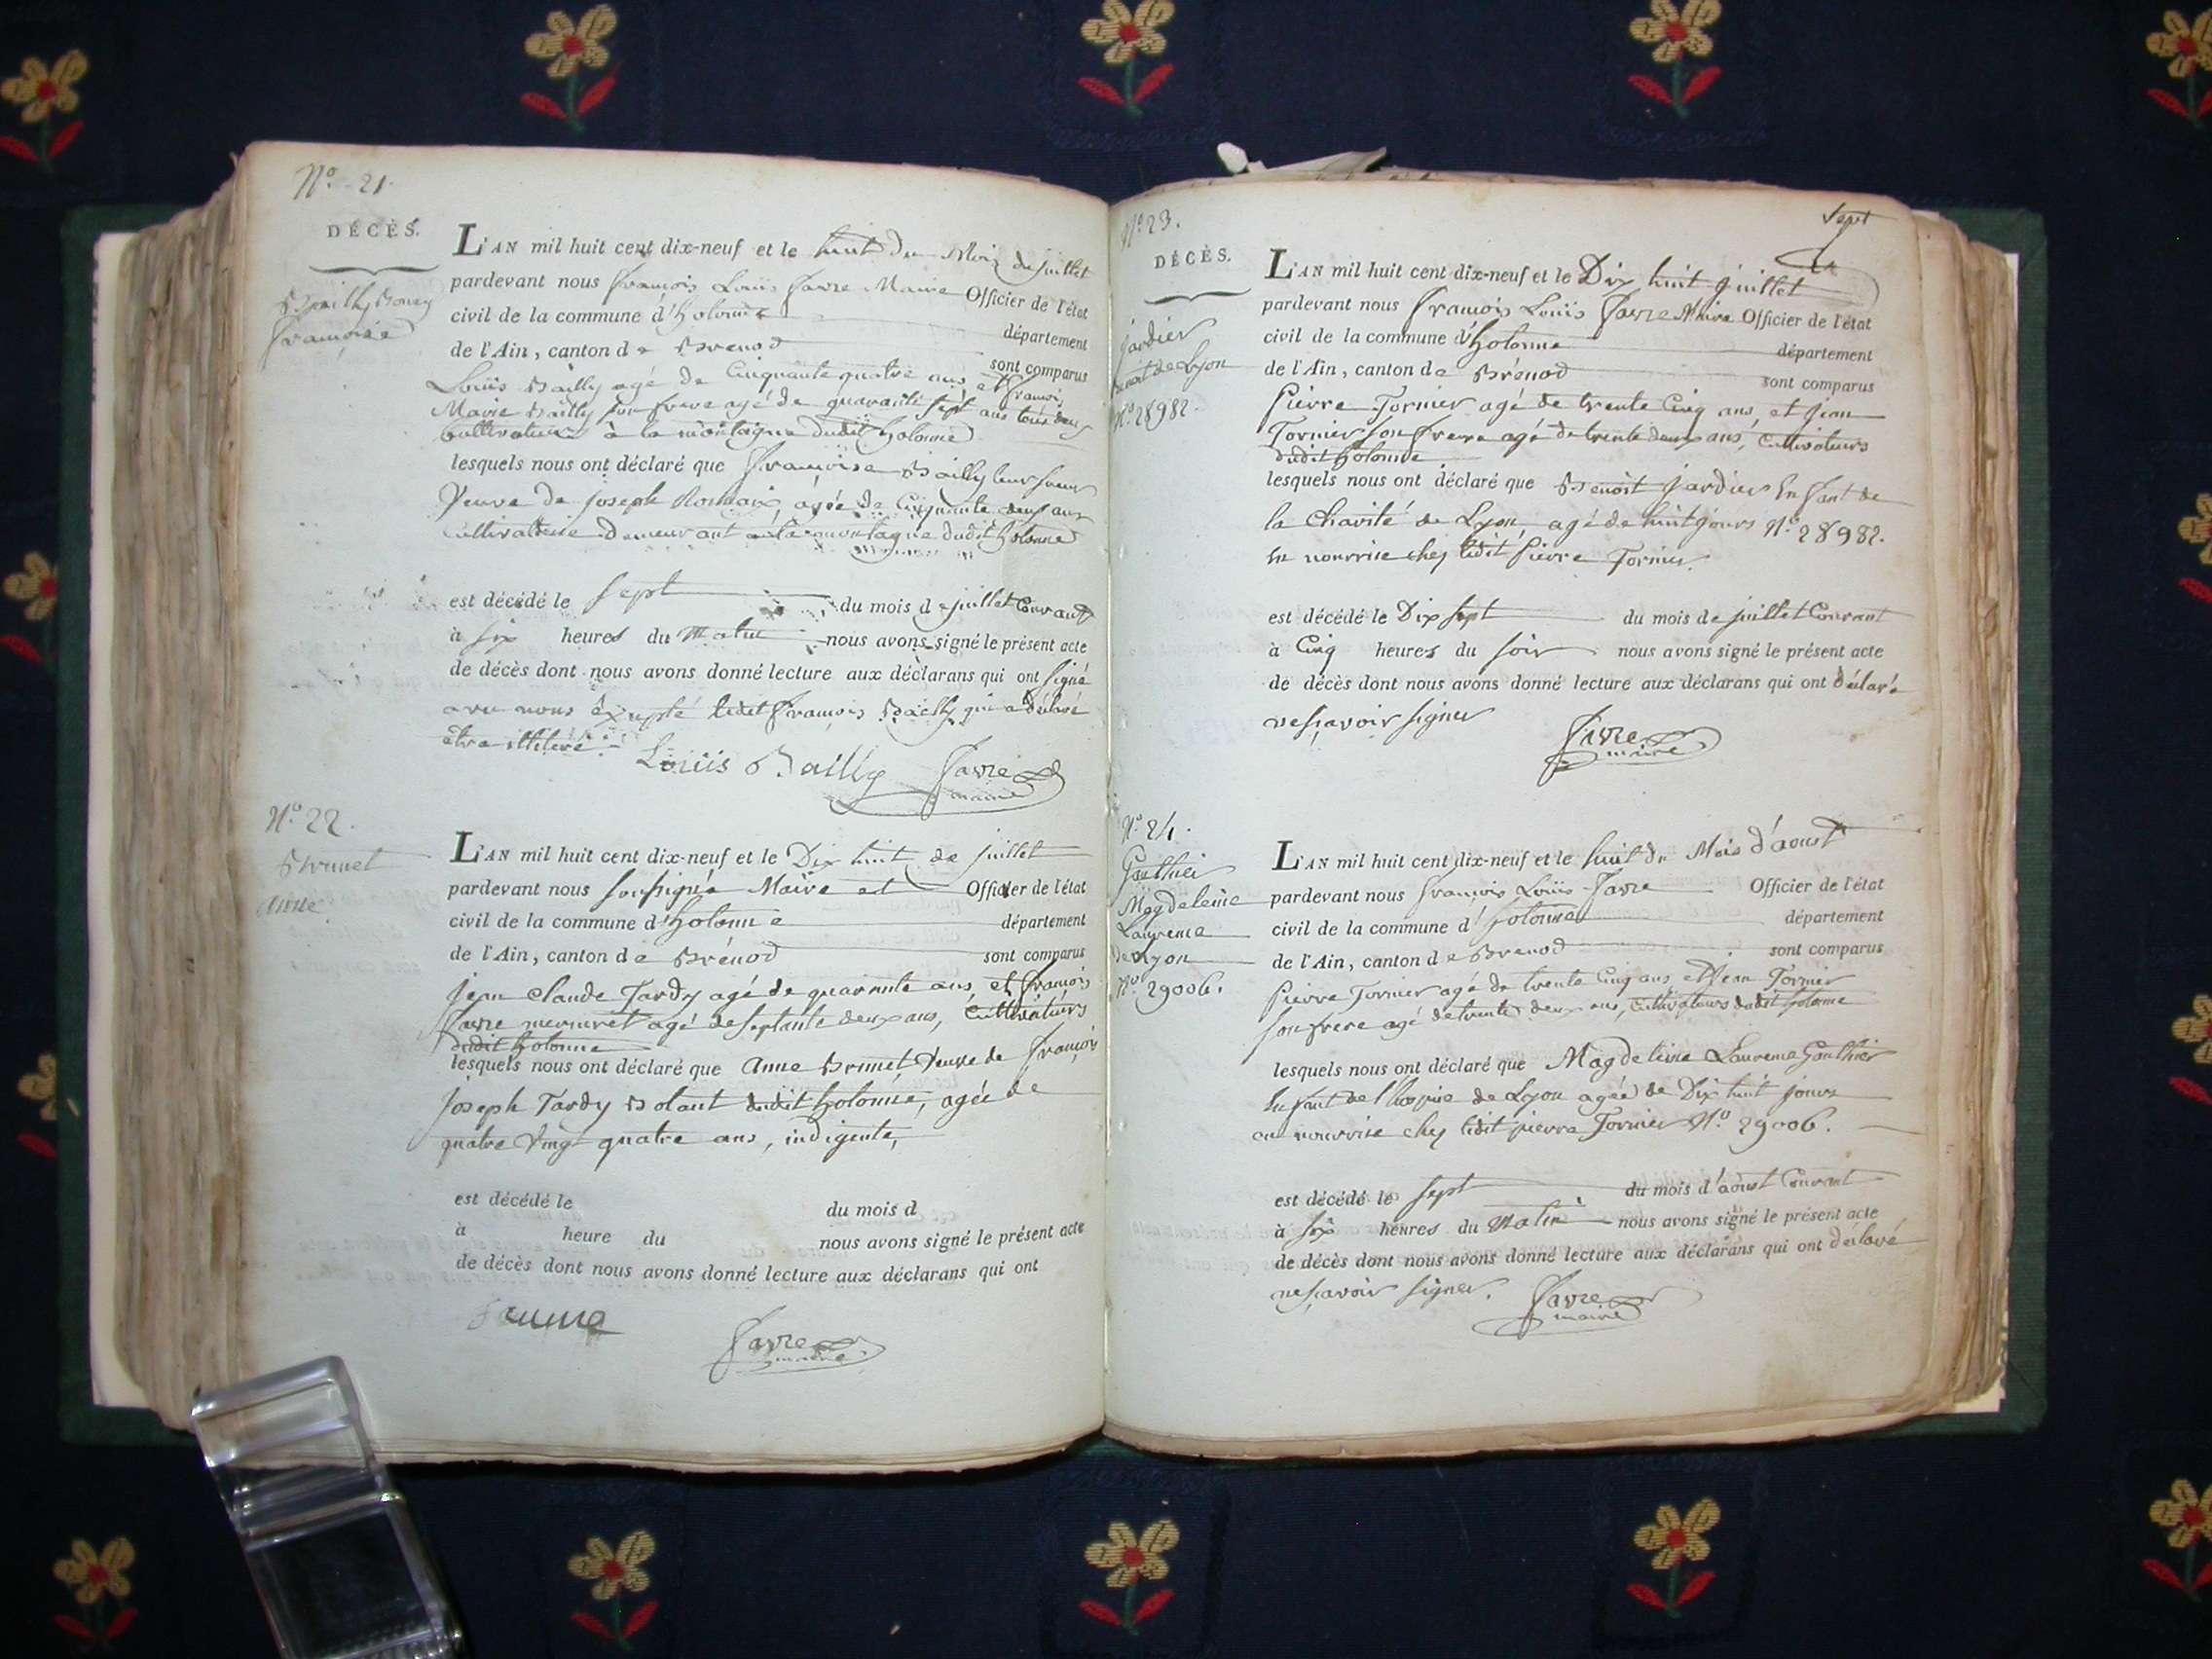 N.º 21.
DÉCÈS.
Bailly
françoise
L'AN mil huit cent dix-neuf et le huit du Mois de juillet
pardevant nous françois Louis favre Maire Officier de l'état
civil de la commune d'hotonne département
de l'Ain, canton de Brenod sont comparus
Louis Bailly agé de Cinquante quatre ans et françois
Marie Bailly son frere agé de quarante sept ans tous deux
Cultivateurs à la montagne dudit hotonne
lesquels nous ont déclaré que françoise Bailly leur sœur
Veuve de joseph agée de Cinquante deux ans
Cultivatrice demeurant à la montagne dudit hotonne
est décédé le sept du mois de juillet Courant
à six heures du matin nous avons signé le présent acte
de décès dont nous avons donné lecture aux déclarans qui ont signé
avec nous éxcepté ledit françois Bailly qui a déclaré
etre illiteré.
Louïs Bailly favre
maire
N.º 22.
Brunet
anne
L'AN mil huit cent dix-neuf et le Dix huit de juillet
pardevant nous soussigné Maire et Officier de l'état
civil de la commune d'hotonne département
de l'Ain, canton de Brénod sont comparus
jean claude Tardy agé de quarante ans et françois
favre agé de septante deux ans, Cultivateurs
dudit hotonne
lesquels nous ont déclaré que anne Brunet Veuve de françois
joseph Tardy Bolant dudit hotonne, agée de
quatre Vingt quatre ans, indigente,
est décédé le du mois d
à heure du nous avons signé le présent acte
de décès dont nous avons donné lecture aux déclarans qui ont
favre
maire
Sept
N.º 23.
DÉCÈS.
jardier
benoit de Lyon
N.º 28982.
L'AN mil huit cent dix-neuf et le Dix huit juillet
pardevant nous françois Louis favre Maire Officier de l'état
civil de la commune d'hotonne département
de l'Ain, canton de Brénod sont comparus
pierre Tornier agé de trente Cinq ans et jean
Tornier son frere agé de trente deux ans, Cultivateurs
dudit hotonne
lesquels nous ont déclaré que Benoit jardier Enfant de
la Charité de Lyon agé de huit jours N.º 28982.
en nourrice chez ledit pierre Tornier.
est décédé le Dix sept du mois de juillet Courant
à Cinq heures du soir nous avons signé le présent acte
de décès dont nous avons donné lecture aux déclarans qui ont déclaré
ne sçavoir signer
favre
maire
N.º 24.
Gauthier
Magdeleine
Laurence
de Lyon
N.º 29006.
L'AN mil huit cent dix-neuf et le huit du Mois d'aoust
pardevant nous françois Louis favre Officier de l'état
civil de la commune d'hotonne département
de l'Ain, canton de Brenod sont comparus
pierre Tornier agé de trente Cinq ans et jean Tornier
son frere agé de trente deux ans, Cultivateurs dudit hotonne
lesquels nous ont déclaré que Magdeleine Laurence Gauthier
Enfant de l'hospice de Lyon agée de Dix huit jours
en nourrice chez ledit pierre Tornier N.º 29006.
est décédé le sept du mois d'aoust Courant
à six heures du matin nous avons signé le présent acte
de décès dont nous avons donné lecture aux déclarans qui ont déclaré
ne sçavoir signer. favre
maire